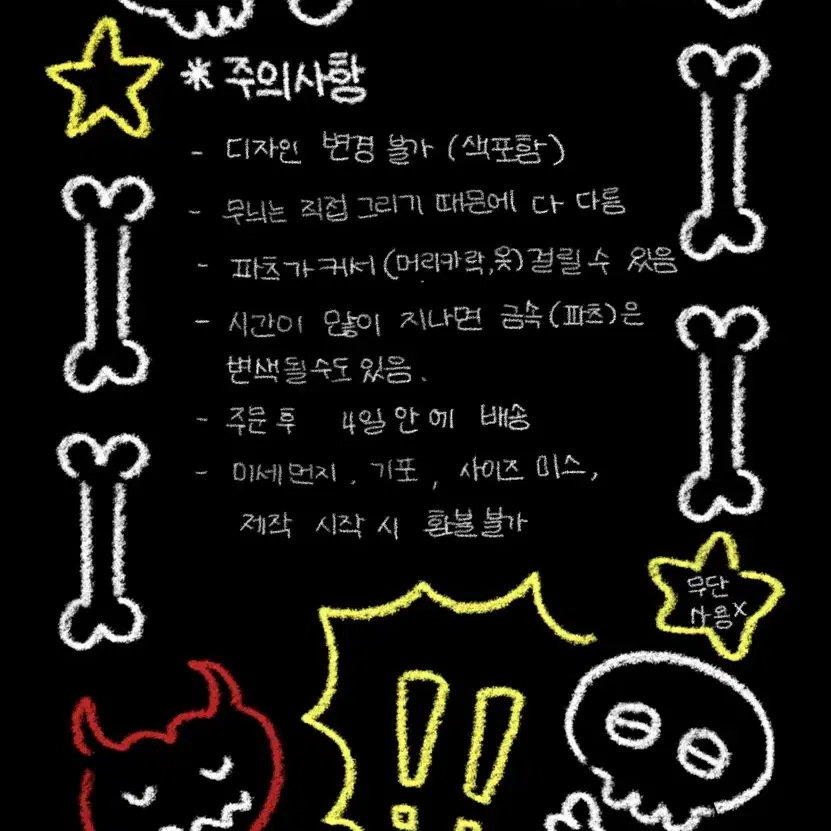 * 주의사항
- 디자인 변경 불가 (색포함)
- 무늬는 직접 그리기 때문에 다 다름
- 파츠가 커서(머리카락,옷)걸릴 수 있음
- 시간이 많이 지나면 금속(파츠)은
변색될수도 있음.
- 주문 후 4일 안에 배송
- 미세먼지. 기포, 사이즈 미스,
제작 시작 시 환불불가
무단
사용x
!!